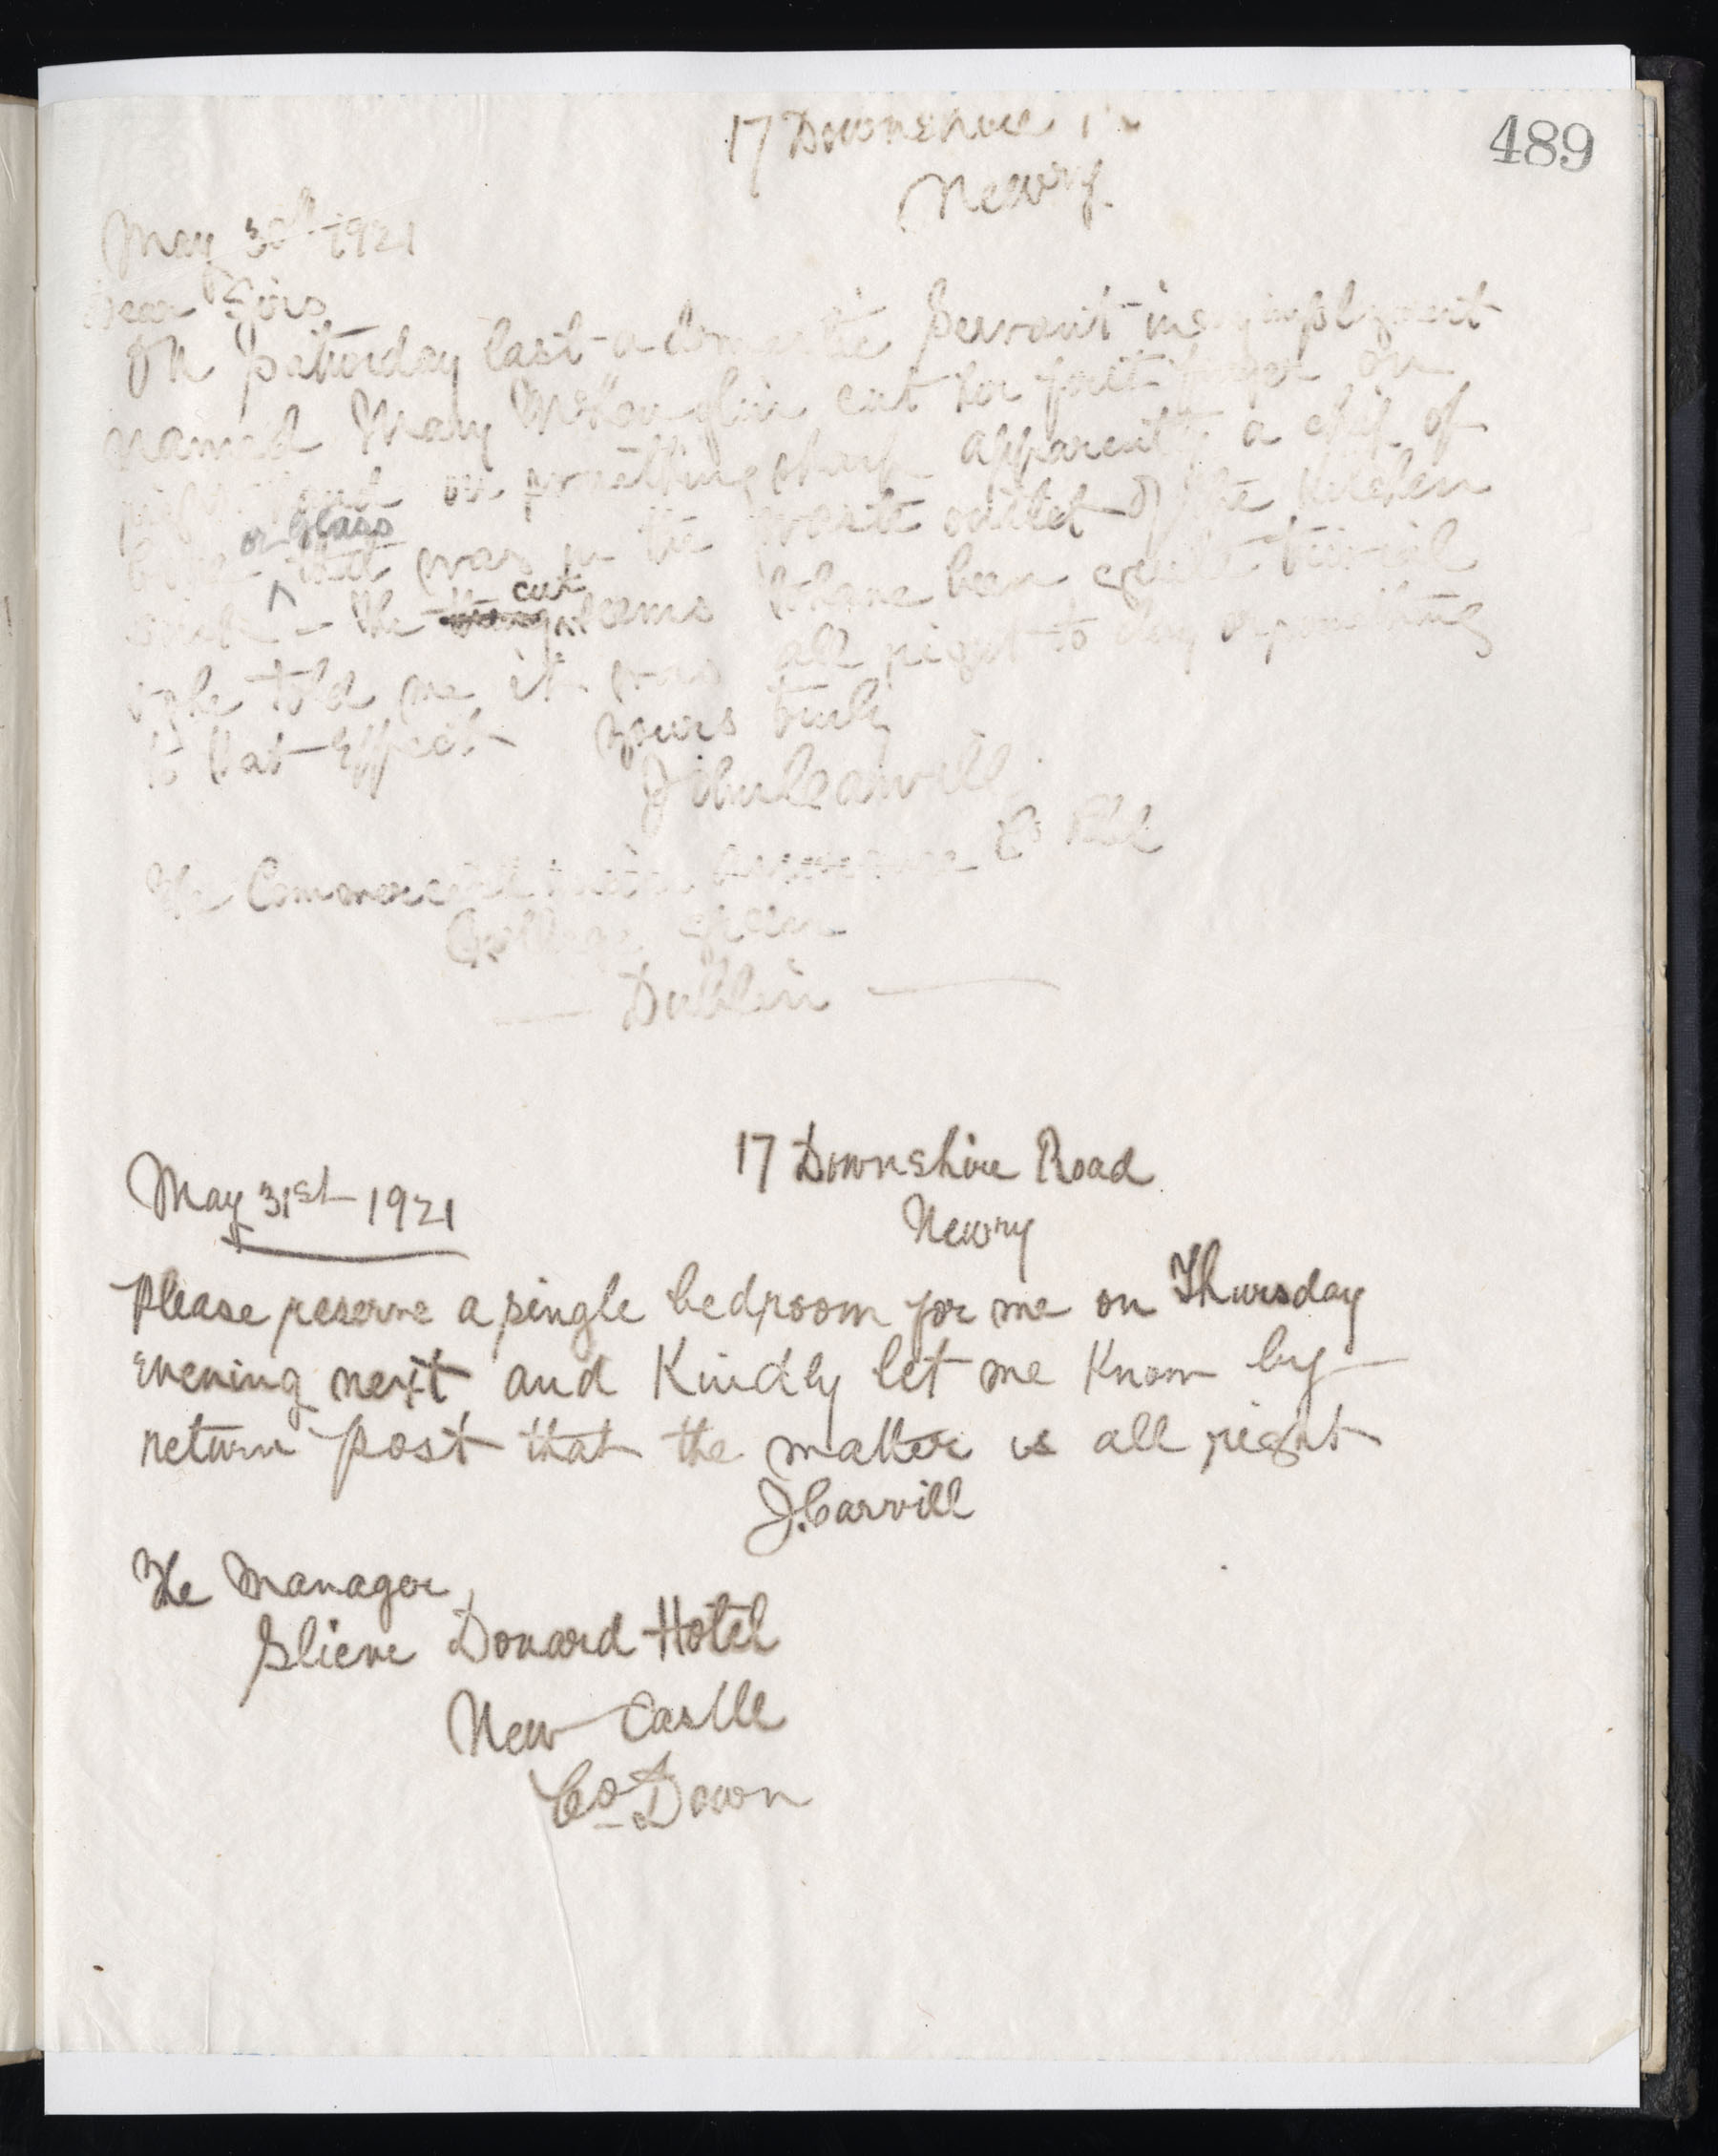 489
17 Downshire
Newry
May 30th 1921
Dear Sirs
On Saturday last a domestic Servant in my employment
named Mary McLoughlin cut her first finger on
right hand on something sharp apparently a chip of
bone or glass that was in the waste outlet of the Kitchen
sink - The cut seems to have been quite trivial
she told me it was all right to day or something
to that Effect Yours truly
John Carvill
The Commercial Union Assurance Co Ltd
College Green
Dublin
17 Downshire Road
May 31st 1921
Newry
Please reserve a single bedroom for me on Thursday
evening next and Kindly let me Know by
return post that the matter is all right
J. Carvill
The Manager
Slieve Donard Hotel
New Castle
Co Down